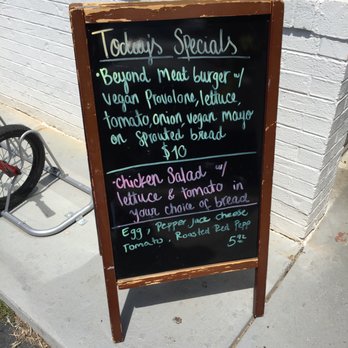 Today's Specials
• Beyond Meat burger w/
vegan Provolone, lettuce,
tomato, onion, vegan mayo
on Sprouted bread
$10
• chicken Salad w/
lettuce & tomato in
your choice of bread
Egg, Pepper jack cheese
Tomato, Roasted Red Pepp